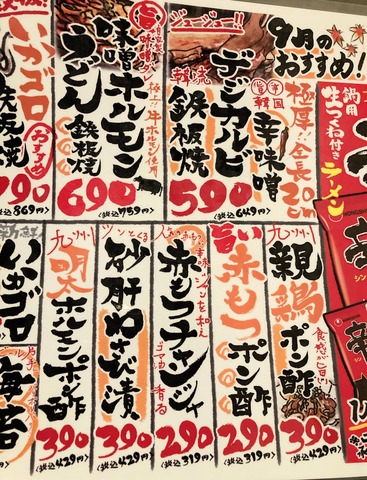 9月の
おすすめ!
鍋用
生つくね付き
ラーメン
極厚!!全長
20cm
旨辛
韓国
辛味噌
デジカルビ
鉄板焼
韓流
ジュージュー!!
590
(税込649円)
旨
極上!!牛ホルモン使用
味噌ホルモン
うどん
鉄板焼
690
(税込759円)
いかゴロ
鉄板焼
おすすめ
790
(税込869円)
九州
親鶏
ポン酢
食感が旨い!!
390
(税込429円)
旨い
赤もつ
ポン酢
290
(税込319円)
赤もつチャンジャ
ゴマ油香る
290
(税込319円)
ツンとくる
砂肝わさび漬
390
(税込429円)
九州
明太ホルモンポン酢
390
(税込429円)
新鮮
いかゴロ
海苔